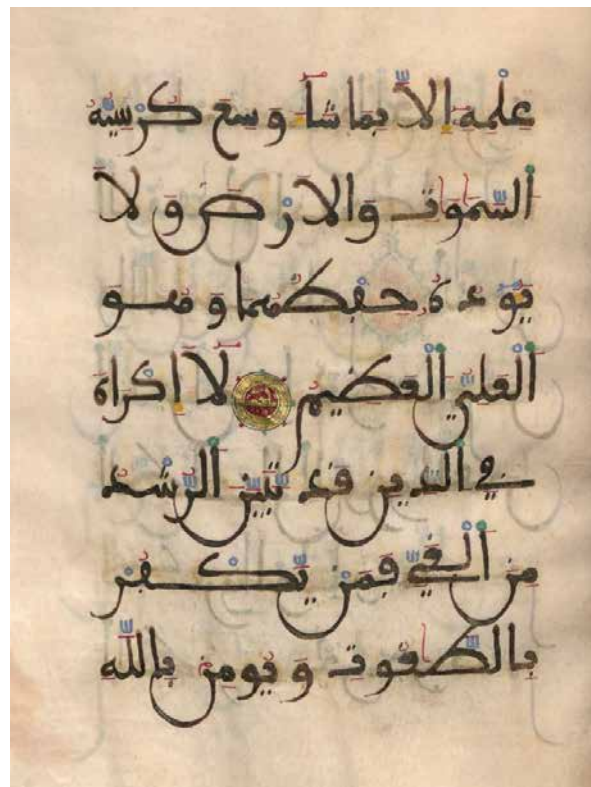 علمه إلا بما شا وسع كرسيه
السموت والارض ولا
يوده حفظهما وهو
العلي العظيم لا إكراه
في الدين قد تبين الرشد
من الغي فمن يكفر
بالطغوت ويومن بالله